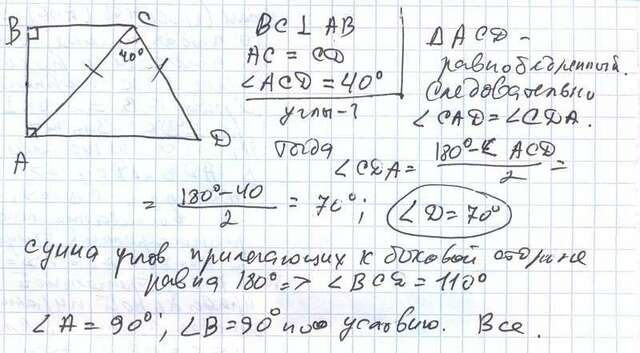 B
C
40°
A
D
BC ⊥ AB
AC = CD
∠ACD = 40°
углы-?
Δ ACD -
равнобедренный.
Следовательно
∠CAD = ∠CDA.
Тогда
∠CDA = (180°-∠ACD)/2 =
= (180°-40)/2 = 70°; ∠D = 70°
сумма углов прилегающих к боковой стороне
равна 180° => ∠BCD = 110°
∠A = 90°; ∠B = 90° по условию. Все.